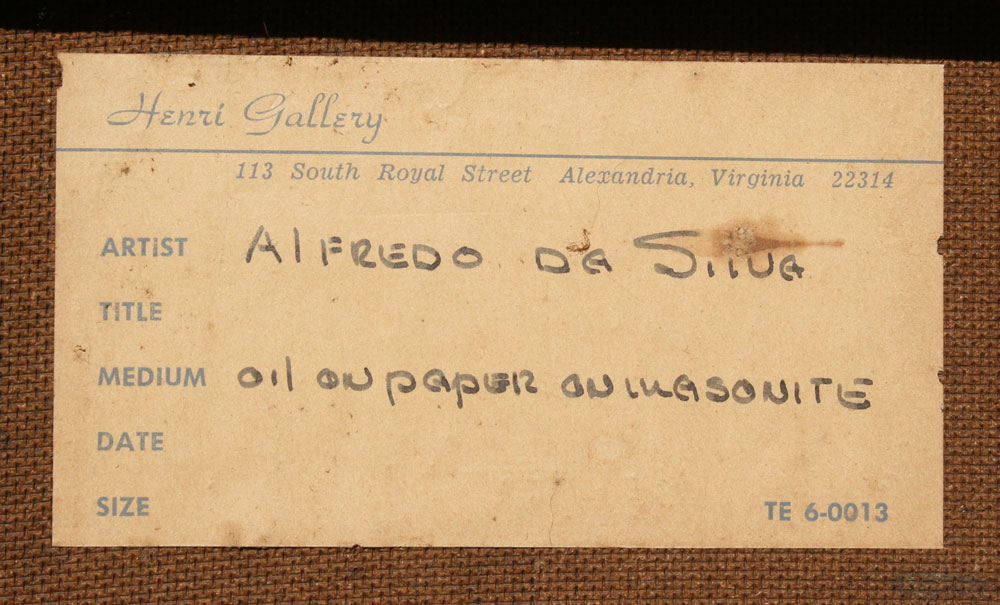 Henri Gallery
113 South Royal Street Alexandria, Virginia 22314
ARTIST AlFREDO DA Silva
TITLE
MEDIUM oil on paper on masonITE
DATE
SIZE TE 6-0013